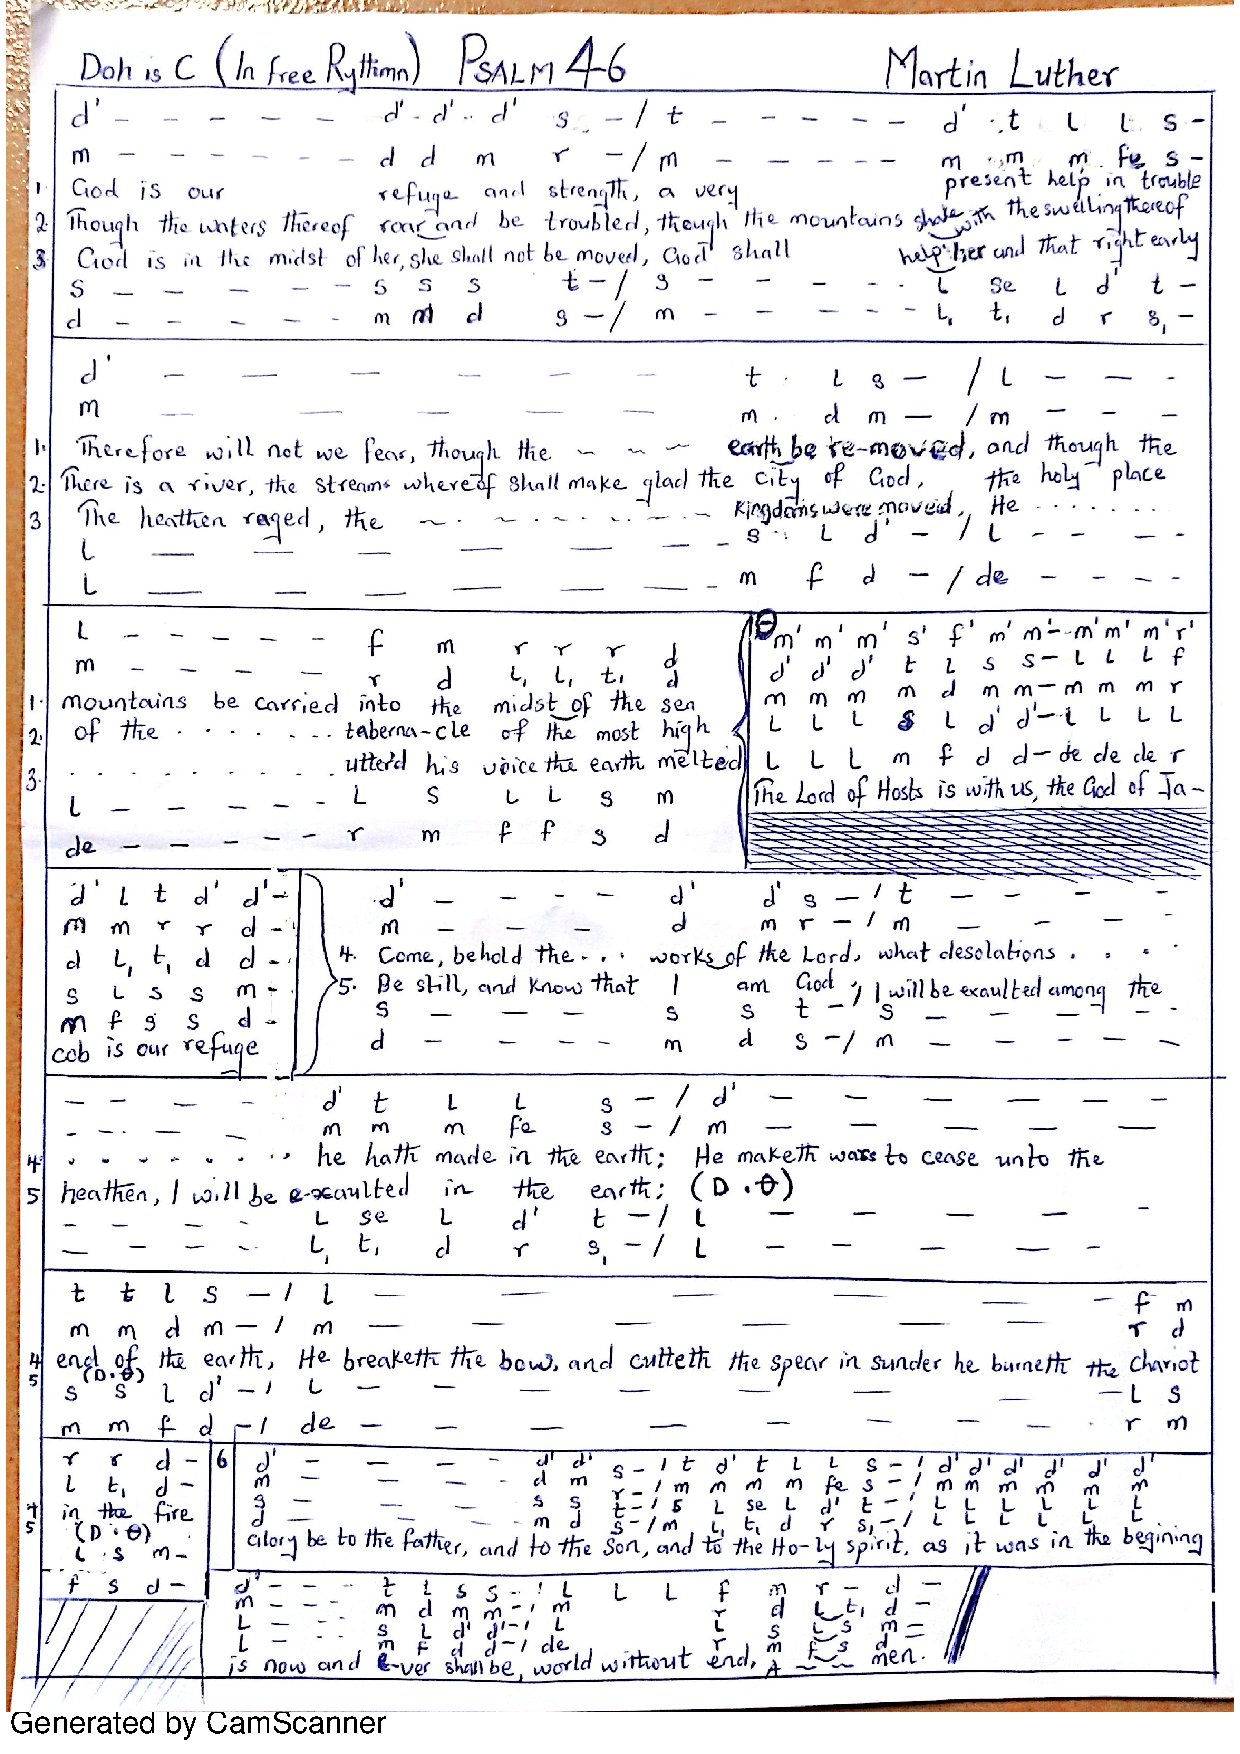 Doh is C (In free Rythmn) PSALM 46 Martin Luther
d' - - - - - d' d' d' s - / t - - - - - d' t L L s -
m - - - - - - d d m r - / m - - - - - m m m fe s -
1. God is our refuge and strength, a very present help in trouble
2 Though the waters thereof roar and be troubled, though the mountains shake with the swelling thereof
3. God is in the midst of her, she shall not be moved, God shall help her and that right early
s - - - - - - s s s t - / s - - - - - L se L d' t -
d - - - - - - m m d s - / m - - - - - - L, t, d r s, -
d' - - - - - - t L s - / L - - -
m - - - - - m d m - / m - - -
1. Therefore will not we fear, though the - - - earth be re-moved, and though the
2. There is a river, the streams whereof shall make glad the city of God, the holy place
3 The heathen raged, the - - - - - - - Kingdoms were moved, He . . . . . . .
L - - - - - - - s L d' - / L - - - -
L - - - - - - m f d - / de - - - -
L - - - - - f m r r r d
m - - - - r d L, L, t, d
1. mountains be carried into the midst of the sea
2. of the . . . . . . . taberna-cle of the most high
3. . . . . . . . . . . utterd his voice the earth melted
L - - - - - - L s L L s m
de - - - - - - r m f f s d
θ m' m' m' s' f' m' m'- m' m' m' r'
d' d' d' t L s s - L L L f
m m m m d m m - m m m r
L L L s L d' d' - L L L L
L L L m f d d - de de de r
The Lord of Hosts is with us, the God of Ja-
d' L t d' d' -
m m r r d -
d L, t, d d -
s L s s m -
m f s s d -
cob is our refuge
d' - - - - d' d' s - / t - - - -
m - - - d m r - / m - - -
4. Come, behold the . . . works of the Lord, what desolations . . . .
5. Be still, and know that I am God, I will be exaulted among the
s - - - s s t - / s - - - - -
d - - - - m d s - / m - - - - -
- - - - d' t L L s - / d' - - - - - -
- - - - m m m fe s - / m - - - - - -
4. . . . . . . . . he hath made in the earth; He maketh wars to cease unto the
5 heathen, I will be e-xaulted in the earth; (D . θ)
- - - - L se L d' t - / L - - - - -
- - - - L, t, d r s, - / L - - - - -
t t L s - / L - - - - - - - f m
m m d m - / m - - - - - - r d
4 end of the earth, He breaketh the bow, and cutteth the spear in sunder he burneth the chariot
5 (D . θ)
s s L d' - / L - - - - - - - - L s
m m f d - / de - - - - - - - r m
r r d -
L t, d -
4 in the fire
5 (D . θ)
L s m -
f s d -
6 d' - - - - d' d' s - / t d' t L L s - / d' d' d' d' d' d'
m - - - - d m r - / m m m m fe s - / m m m m m m
s - - - - s s t - / s L se L d' t - / L L L L L L
d - - - - m d s - / m L, t, d r s, - / L L L L L L
Glory be to the father, and to the Son, and to the Ho-ly spirit, as it was in the begining
d' - - - t L s s - / L L L f m r - d -
m - - - m d m m - / m r d L, t, d -
L - - - s L d' d' - / L L s L s m -
L - - - m f d d - / de r m f s d -
is now and e-ver shall be, world without end, A - - - men.
Generated by CamScanner